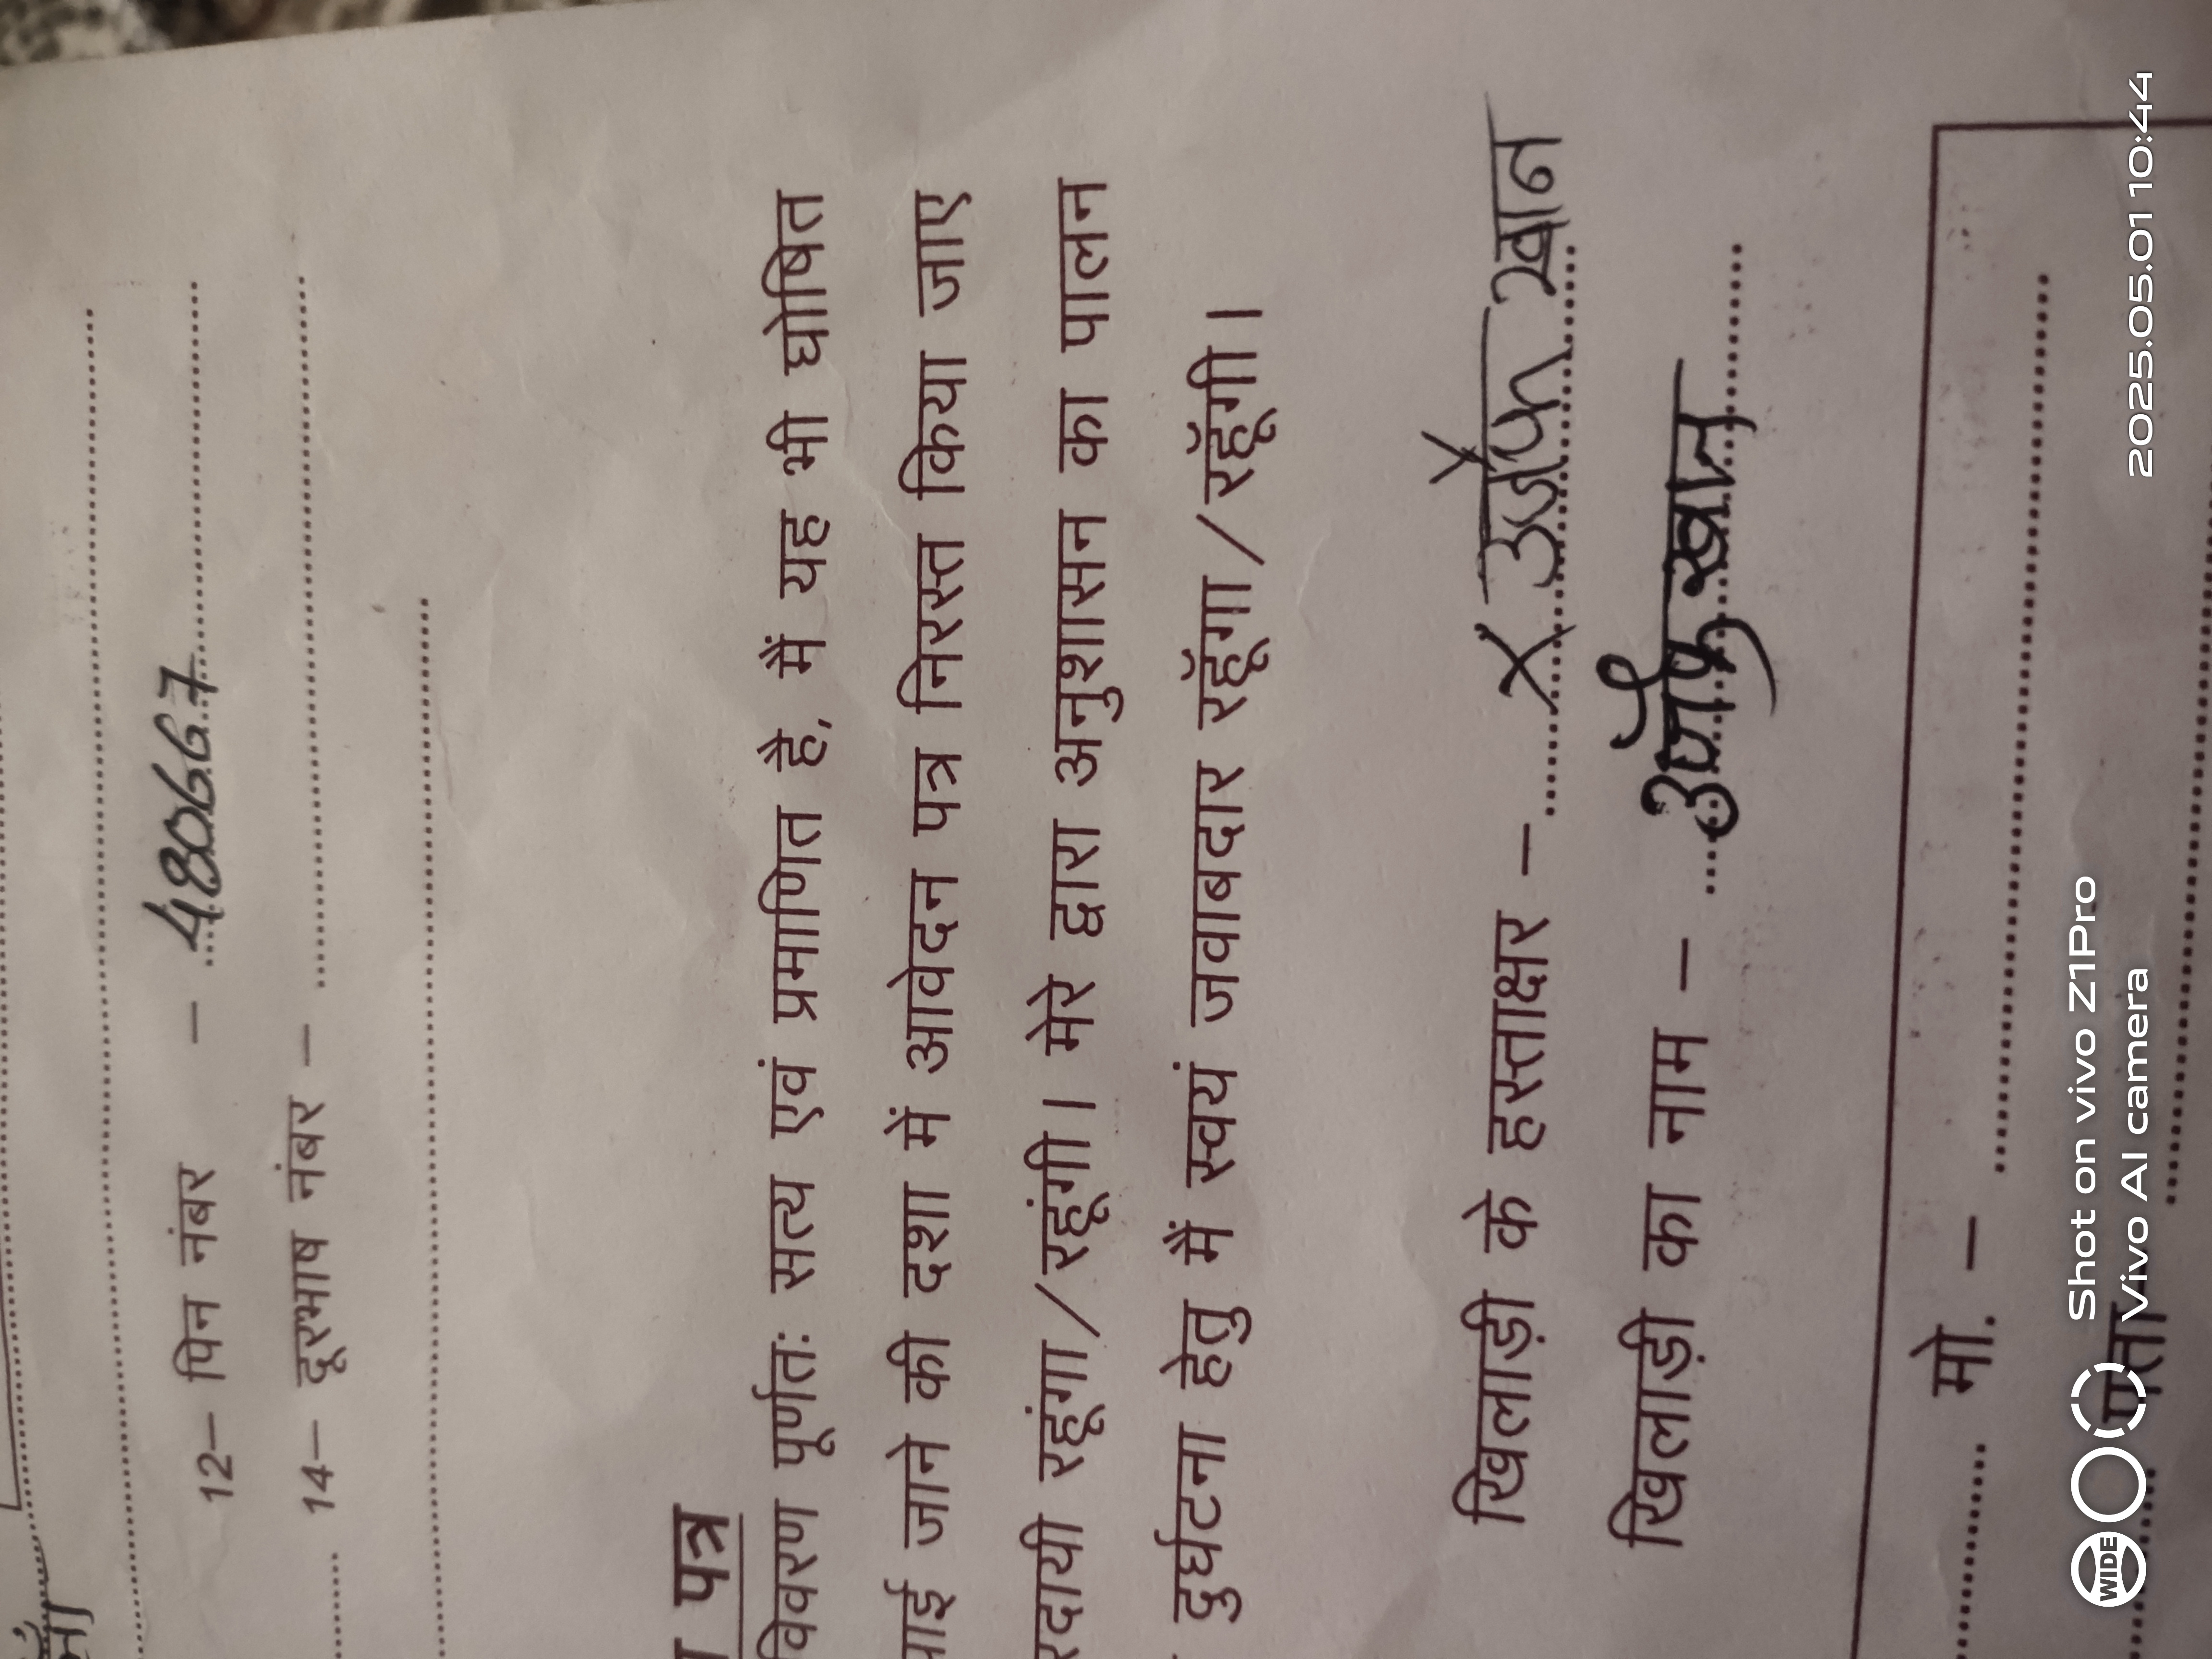 12– पिन नंबर – 480667
14– दूरभाष नंबर –
पत्र
विवरण पूर्णतः सत्य एवं प्रमाणित है, मैं यह भी घोषित
पाई जाने की दशा में आवेदन पत्र निरस्त किया जाए
रहूंगा/रहूंगी। मेरे द्वारा अनुशासन का पालन
दुर्घटना हेतु मैं स्वयं जवाबदार रहूँगा/रहूँगी।
खिलाड़ी के हस्ताक्षर – X खान
खिलाड़ी का नाम – खान
मो. –
पता
Shot on vivo Z1Pro
Vivo AI camera
WIDE
2025.05.01 10:44